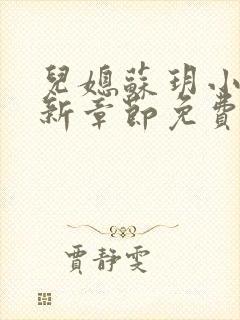 兒媳蘇玥小
新章節免費
賈靜雯